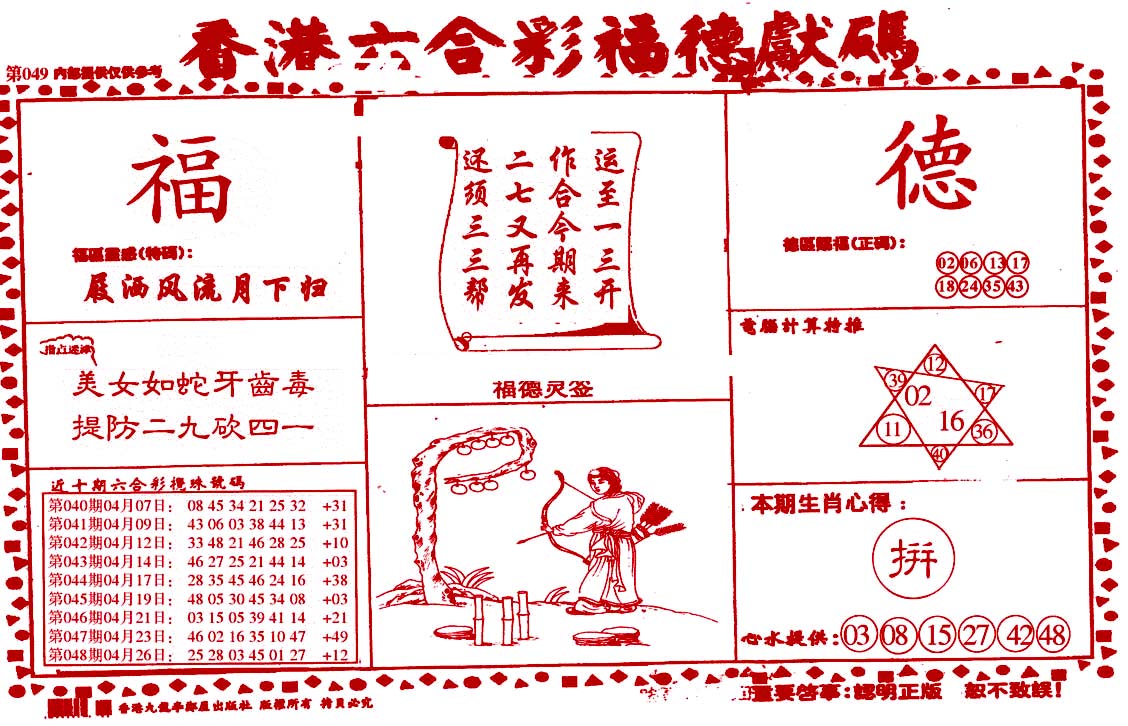 香港六合彩福德獻碼
第049 內部提供仅供參考
福
福區靈感(特碼):
屐洒风流月下归
指点迷津
美女如蛇牙齒毒
提防二九砍四一
近十期六合彩攪珠號碼
第040期04月07日: 08 45 34 21 25 32 +31
第041期04月09日: 43 06 03 38 44 13 +31
第042期04月12日: 33 48 21 46 28 25 +10
第043期04月14日: 46 27 25 21 44 14 +03
第044期04月17日: 28 35 45 46 24 16 +38
第045期04月19日: 48 05 30 45 34 08 +03
第046期04月21日: 03 15 05 39 41 14 +21
第047期04月23日: 46 02 16 35 10 47 +49
第048期04月26日: 25 28 03 45 01 27 +12
运至一三开
作合今期来
二七又再发
还须三三帮
福德灵签
德
德區賜福(正碼):
02 06 13 17
18 24 35 43
電腦計算特推
12
39 02 17
11 16 36
40
本期生肖心得:
拼
心水提供:03 08 15 27 42 48
香港九龍 出版社 版權所有 拷貝必究
重要啓事:認明正版 恕不致誤!